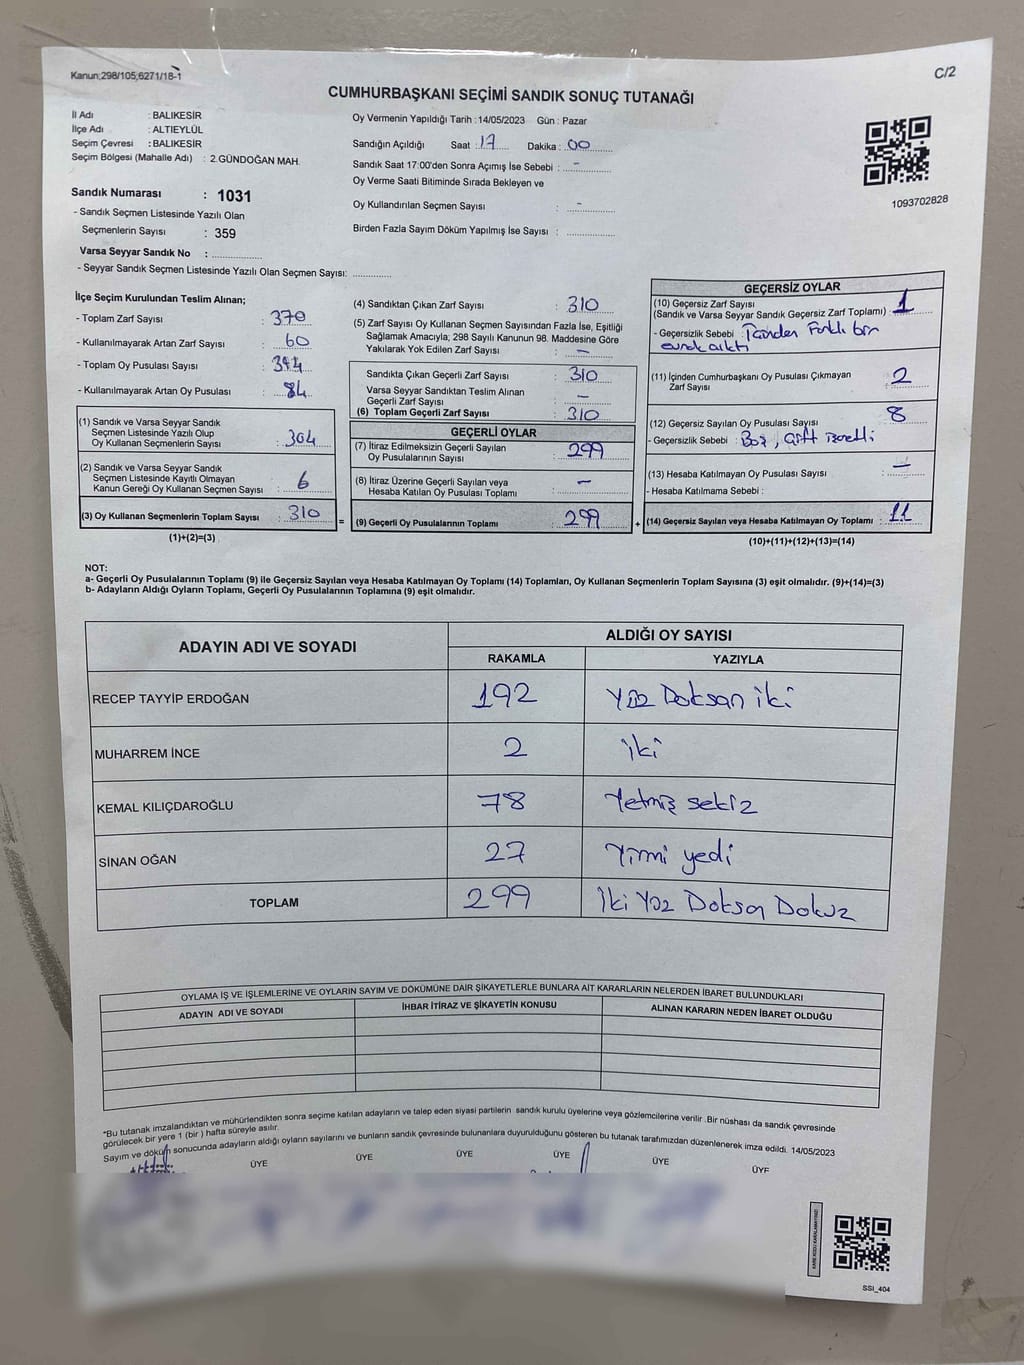 Kanun;298/105;6271/18-1
C/2
CUMHURBAŞKANI SEÇİMİ SANDIK SONUÇ TUTANAĞI
İl Adı : BALIKESİR
İlçe Adı : ALTIEYLÜL
Seçim Çevresi : BALIKESİR
Seçim Bölgesi (Mahalle Adı) : 2.GÜNDOĞAN MAH.
Sandık Numarası : 1031
- Sandık Seçmen Listesinde Yazılı Olan
Seçmenlerin Sayısı : 359
Varsa Seyyar Sandık No :
- Seyyar Sandık Seçmen Listesinde Yazılı Olan Seçmen Sayısı:
Oy Vermenin Yapıldığı Tarih : 14/05/2023 Gün : Pazar
Sandığın Açıldığı Saat : 17 Dakika : 00
Sandık Saat 17:00'den Sonra Açımış İse Sebebi : -
Oy Verme Saati Bitiminde Sırada Bekleyen ve
Oy Kullandırılan Seçmen Sayısı : -
Birden Fazla Sayım Döküm Yapılmış İse Sayısı :
1093702828
İlçe Seçim Kurulundan Teslim Alınan;
- Toplam Zarf Sayısı : 370
- Kullanılmayarak Artan Zarf Sayısı : 60
- Toplam Oy Pusulası Sayısı : 394
- Kullanılmayarak Artan Oy Pusulası : 84
(1) Sandık ve Varsa Seyyar Sandık
Seçmen Listesinde Yazılı Olup
Oy Kullanan Seçmenlerin Sayısı : 304
(2) Sandık ve Varsa Seyyar Sandık
Seçmen Listesinde Kayıtlı Olmayan
Kanun Gereği Oy Kullanan Seçmen Sayısı : 6
(3) Oy Kullanan Seçmenlerin Toplam Sayısı : 310
(1)+(2)=(3)
(4) Sandıktan Çıkan Zarf Sayısı : 310
(5) Zarf Sayısı Oy Kullanan Seçmen Sayısından Fazla İse, Eşitliği
Sağlamak Amacıyla; 298 Sayılı Kanunun 98. Maddesine Göre
Yakılarak Yok Edilen Zarf Sayısı : -
Sandıkta Çıkan Geçerli Zarf Sayısı : 310
Varsa Seyyar Sandıktan Teslim Alınan
Geçerli Zarf Sayısı : -
(6) Toplam Geçerli Zarf Sayısı : 310
GEÇERLİ OYLAR
(7) İtiraz Edilmeksizin Geçerli Sayılan
Oy Pusulalarının Sayısı : 299
(8) İtiraz Üzerine Geçerli Sayılan veya
Hesaba Katılan Oy Pusulası Toplamı : -
= (9) Geçerli Oy Pusulalarının Toplamı : 299
GEÇERSİZ OYLAR
(10) Geçersiz Zarf Sayısı
(Sandık ve Varsa Seyyar Sandık Geçersiz Zarf Toplamı) : 1
- Geçersizlik Sebebi : İçinden Farklı bir
evrak çıktı
(11) İçinden Cumhurbaşkanı Oy Pusulası Çıkmayan
Zarf Sayısı : 2
(12) Geçersiz Sayılan Oy Pusulası Sayısı : 8
- Geçersizlik Sebebi : Boş, çift işaretli
(13) Hesaba Katılmayan Oy Pusulası Sayısı : -
- Hesaba Katılmama Sebebi :
+ (14) Geçersiz Sayılan veya Hesaba Katılmayan Oy Toplamı : 11
(10)+(11)+(12)+(13)=(14)
NOT:
a- Geçerli Oy Pusulalarının Toplamı (9) ile Geçersiz Sayılan veya Hesaba Katılmayan Oy Toplamı (14) Toplamları, Oy Kullanan Seçmenlerin Toplam Sayısına (3) eşit olmalıdır. (9)+(14)=(3)
b- Adayların Aldığı Oyların Toplamı, Geçerli Oy Pusulalarının Toplamına (9) eşit olmalıdır.
ADAYIN ADI VE SOYADI
ALDIĞI OY SAYISI
RAKAMLA YAZIYLA
RECEP TAYYİP ERDOĞAN 192 Yüz Doksan iki
MUHARREM İNCE 2 iki
KEMAL KILIÇDAROĞLU 78 Yetmiş sekiz
SİNAN OĞAN 27 Yirmi yedi
TOPLAM 299 İki Yüz Doksan Dokuz
OYLAMA İŞ VE İŞLEMLERİNE VE OYLARIN SAYIM VE DÖKÜMÜNE DAİR ŞİKAYETLERLE BUNLARA AİT KARARLARIN NELERDEN İBARET BULUNDUKLARI
ADAYIN ADI VE SOYADI İHBAR İTİRAZ VE ŞİKAYETİN KONUSU ALINAN KARARIN NEDEN İBARET OLDUĞU
*Bu tutanak imzalandıktan ve mühürlendikten sonra seçime katılan adayların ve talep eden siyasi partilerin sandık kurulu üyelerine veya gözlemcilerine verilir .Bir nüshası da sandık çevresinde
görülecek bir yere 1 (bir ) hafta süreyle asılır.
Sayım ve döküm sonucunda adayların aldığı oyların sayılarını ve bunların sandık çevresinde bulunanlara duyurulduğunu gösteren bu tutanak tarafımızdan düzenlenerek imza edildi. 14/05/2023
ÜYE ÜYE ÜYE ÜYE ÜYE ÜYE
SSI_404